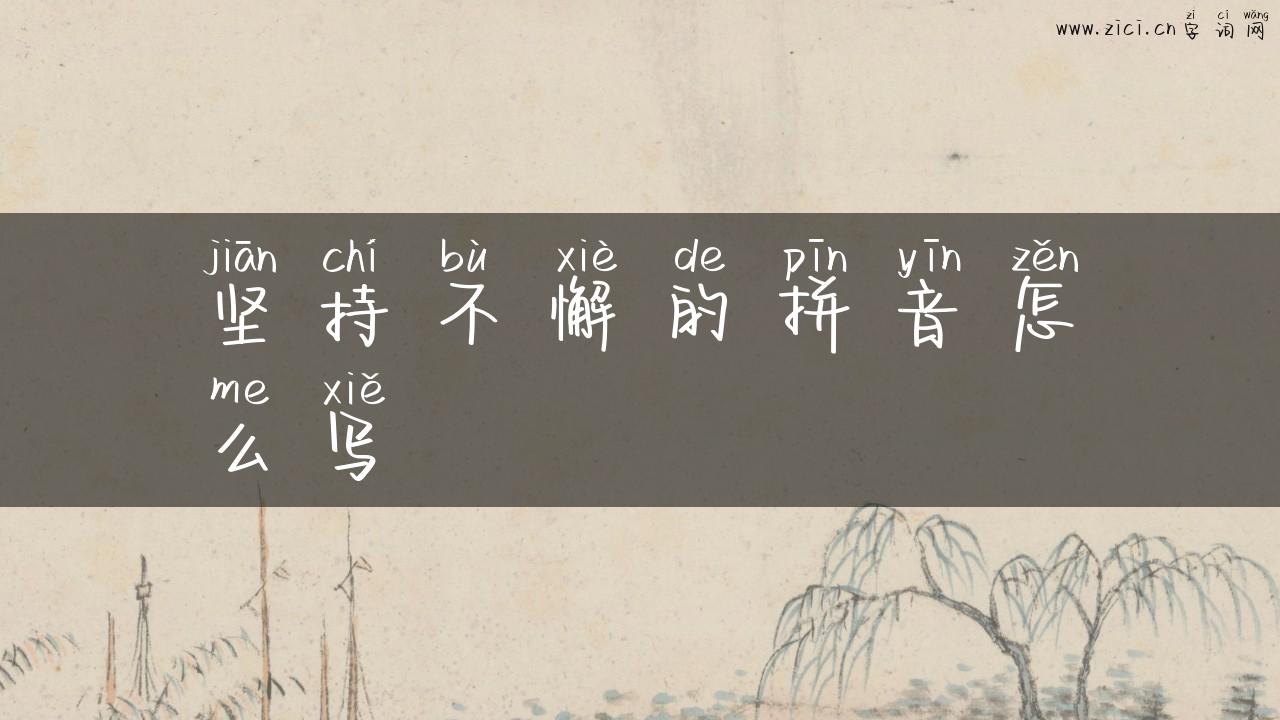 zì cí wǎng
www.zici.cn 字词网
jiān chí bù xiè de pīn yīn zěn
坚持不懈的拼音怎
me xiě
么写